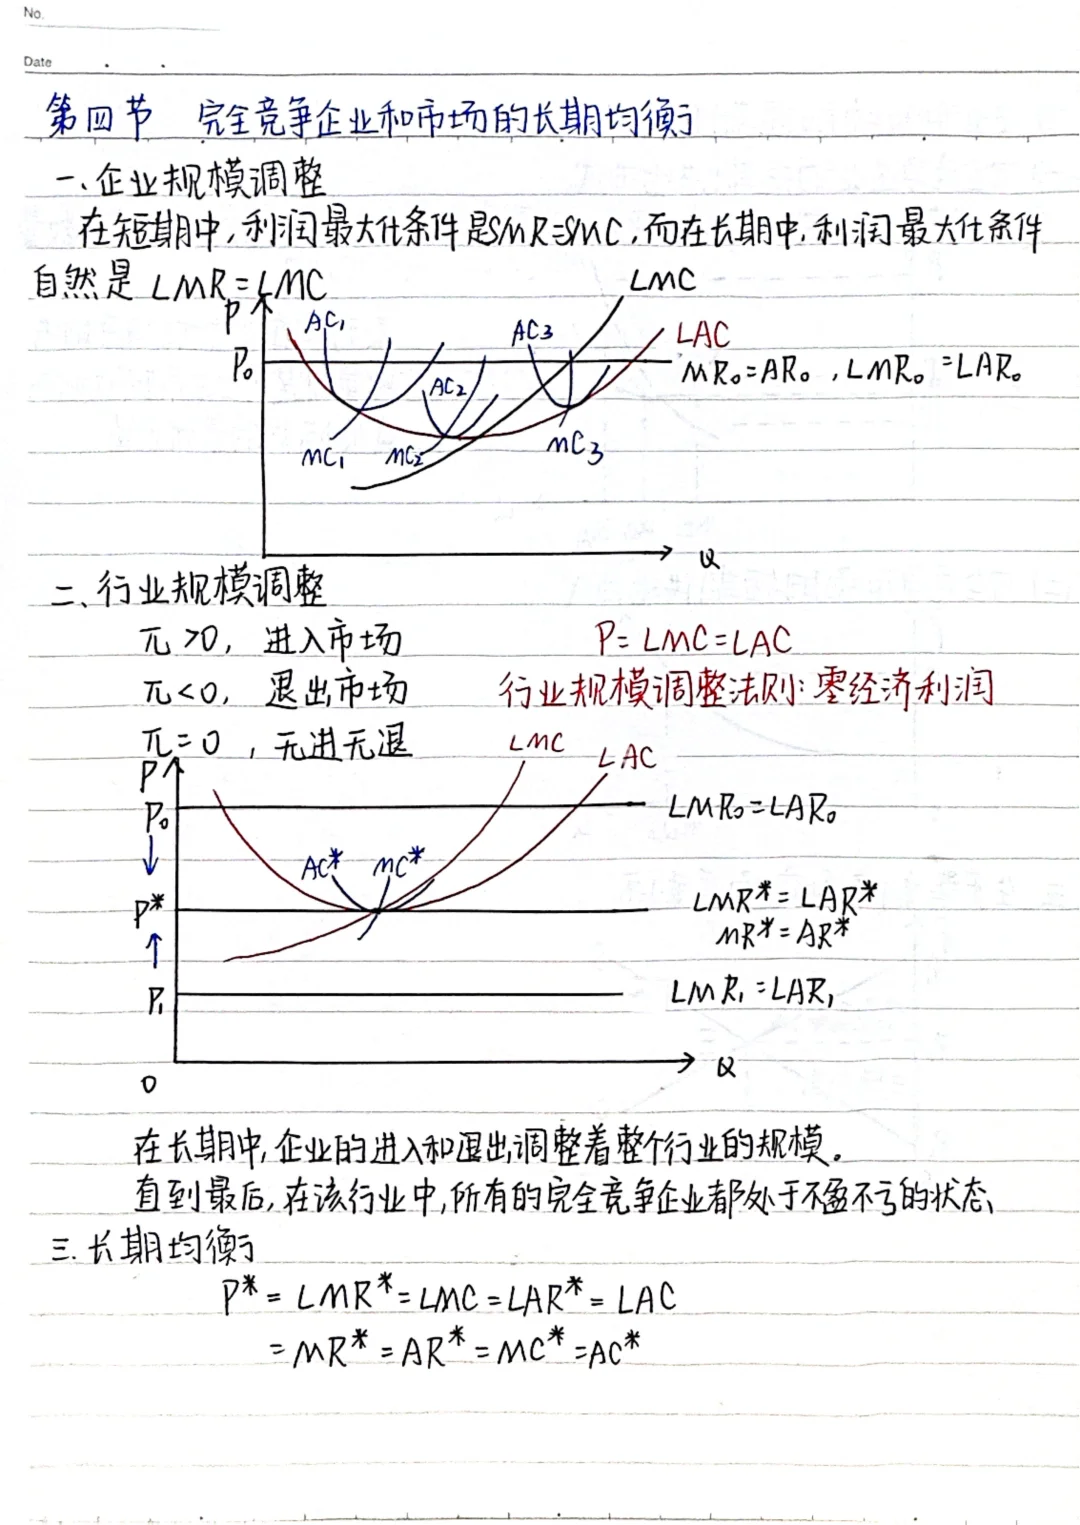 No.
Date
第四节 完全竞争企业和市场的长期均衡
一、企业规模调整
在短期中,利润最大化条件是SMR=SMC,而在长期中,利润最大化条件
自然是 LMR=LMC
P
LMC
AC₁
AC₃
LAC
P₀
MR₀=AR₀ ,LMR₀=LAR₀
AC₂
MC₁
MC₂
MC₃
Q
二、行业规模调整
π>0, 进入市场
P=LMC=LAC
π<0, 退出市场
行业规模调整法则:零经济利润
π=0 ,无进无退
LMC
LAC
P
P₀
LMR₀=LAR₀
AC*
MC*
P*
LMR*=LAR*
MR*=AR*
P₁
LMR₁=LAR₁
Q
0
在长期中,企业的进入和退出调整着整个行业的规模。
直到最后,在该行业中,所有的完全竞争企业都处于不盈不亏的状态、
三.长期均衡
P*=LMR*=LMC=LAR*=LAC
=MR*=AR*=MC*=AC*